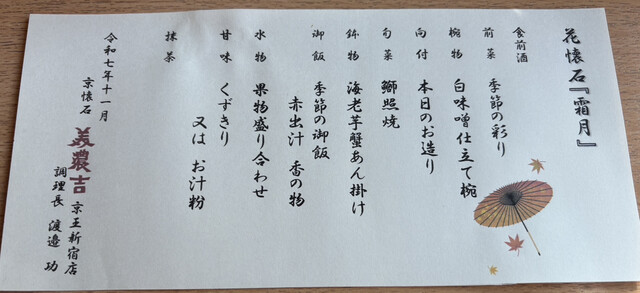 花懐石『霜月』
食前酒
前菜　季節の彩り
椀物　白味噌仕立て椀
向付　本日のお造り
旬菜　鰤照焼
鉢物　海老芋蟹あん掛け
御飯　季節の御飯
赤出汁　香の物
水物　果物盛り合わせ
甘味　くずきり
又は　お汁粉
抹茶
令和七年十一月
京懐石　美濃吉　京王新宿店
調理長　渡邉　功